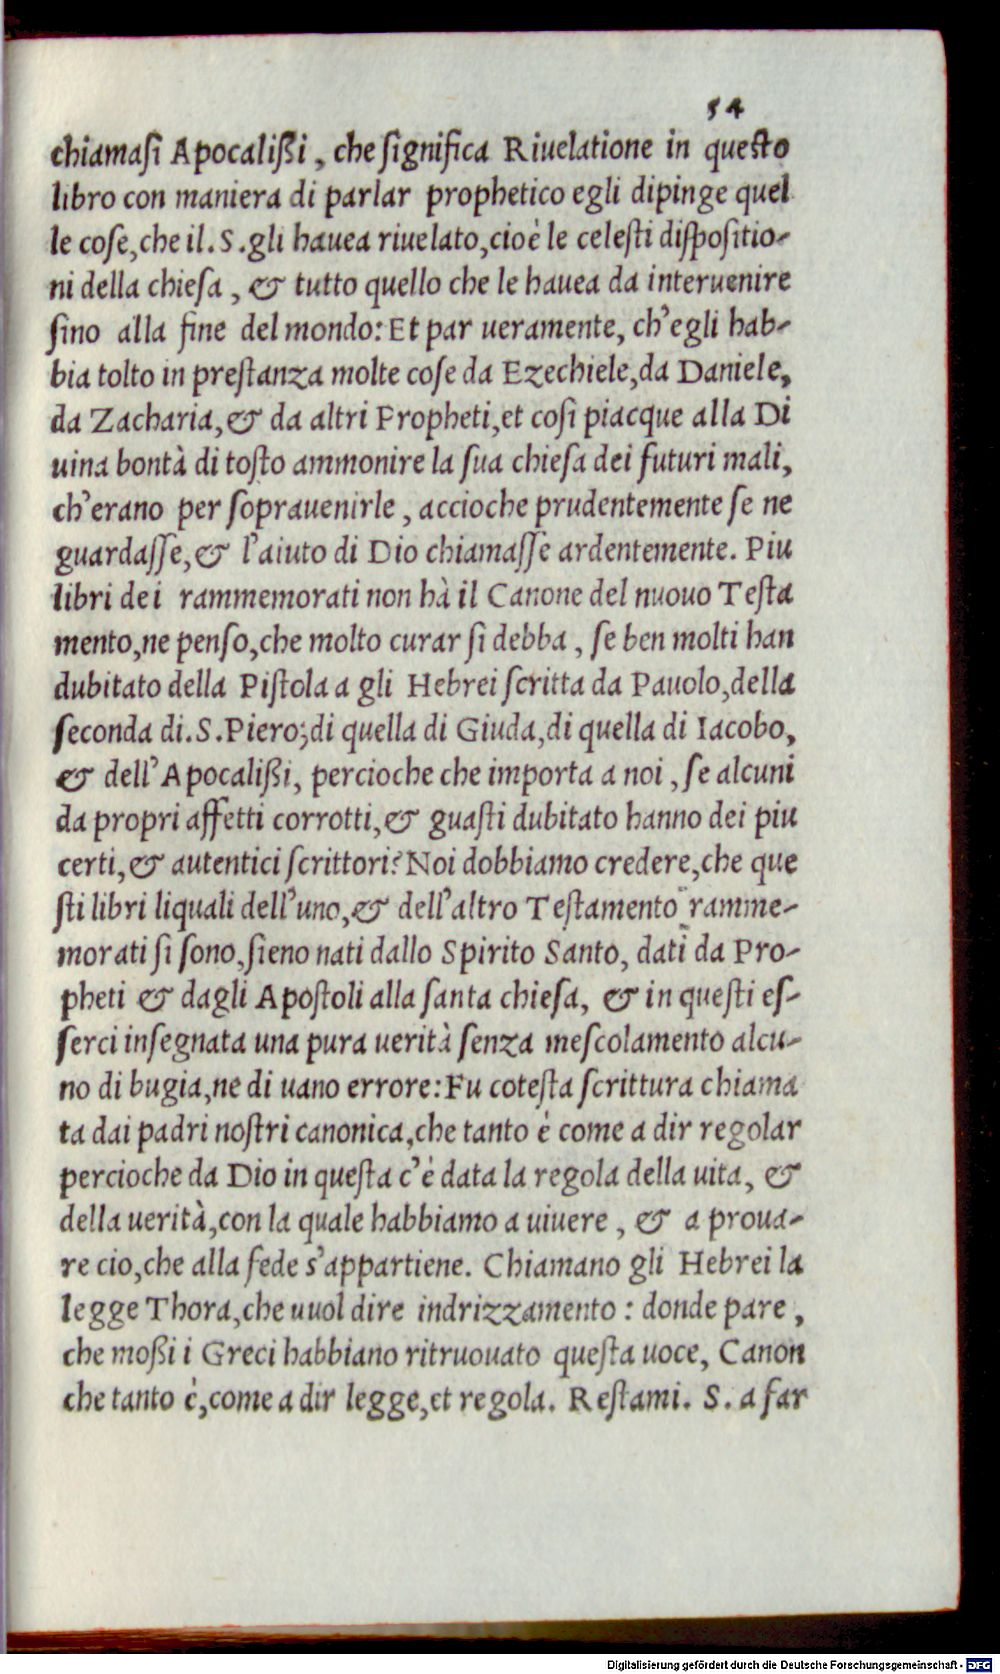 54
chiamasi Apocalißi, che significa Riuelatione in questo
libro con maniera di parlar prophetico egli dipinge quel
le cose, che il. S. gli hauea riuelato, cioè le celesti dispositio-
ni della chiesa, & tutto quello che le hauea da interuenire
sino alla fine del mondo: Et par ueramente, ch'egli hab-
bia tolto in prestanza molte cose da Ezechiele, da Daniele,
da Zacharia, & da altri Propheti, et cosi piacque alla Di
uina bontà di tosto ammonire la sua chiesa dei futuri mali,
ch'erano per soprauenirle, accioche prudentemente se ne
guardasse, & l'aiuto di Dio chiamasse ardentemente. Piu
libri dei rammemorati non hà il Canone del nuouo Testa
mento, ne penso, che molto curar si debba, se ben molti han
dubitato della Pistola a gli Hebrei scritta da Pauolo, della
seconda di. S. Piero; di quella di Giuda, di quella di Iacobo,
& dell'Apocalißi, percioche che importa a noi, se alcuni
da propri affetti corrotti, & guasti dubitato hanno dei piu
certi, & autentici scrittori? Noi dobbiamo credere, che que
sti libri liquali dell'uno, & dell'altro Testamento ramme-
morati si sono, sieno nati dallo Spirito Santo, dati da Pro-
pheti & dagli Apostoli alla santa chiesa, & in questi es-
serci insegnata una pura uerità senza mescolamento alcu-
no di bugia, ne di uano errore: Fu cotesta scrittura chiama
ta dai padri nostri canonica, che tanto è come a dir regolar
percioche da Dio in questa c'è data la regola della uita, &
della uerità, con la quale habbiamo a uiuere, & a proua-
re cio, che alla fede s'appartiene. Chiamano gli Hebrei la
legge Thora, che uuol dire indrizzamento: donde pare,
che moßi i Greci habbiano ritruouato questa uoce, Canon
che tanto è, come a dir legge, et regola. Restami. S. a far
Digitalisierung gefördert durch die Deutsche Forschungsgemeinschaft - DFG